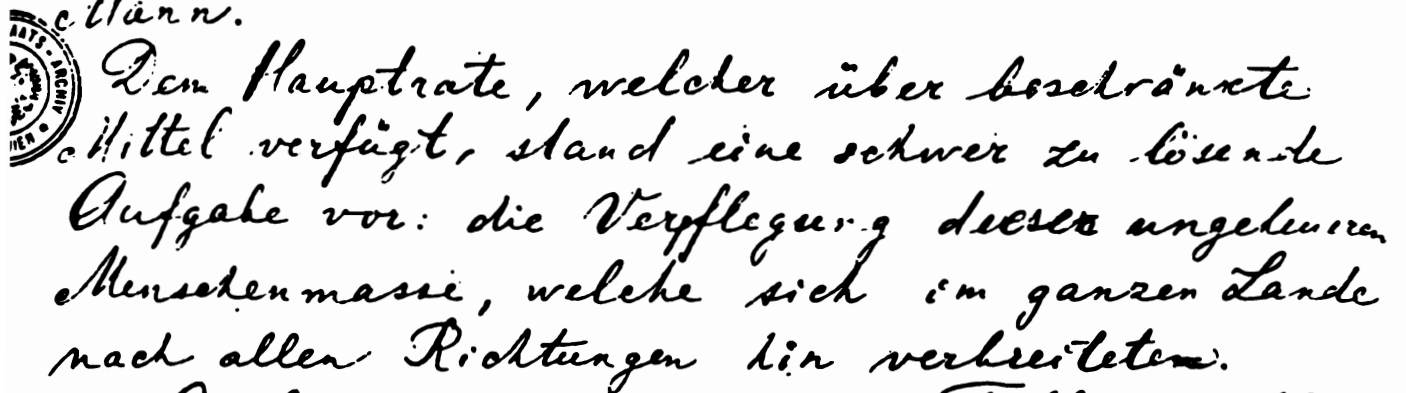 Mann.
Dem Hauptrate, welcher über beschränkte
Mittel verfügt, stand eine schwer zu lösende
Aufgabe vor: die Verpflegung dieser ungeheueren
Menschenmasse, welche sich im ganzen Lande
nach allen Richtungen hin verbreiteten.